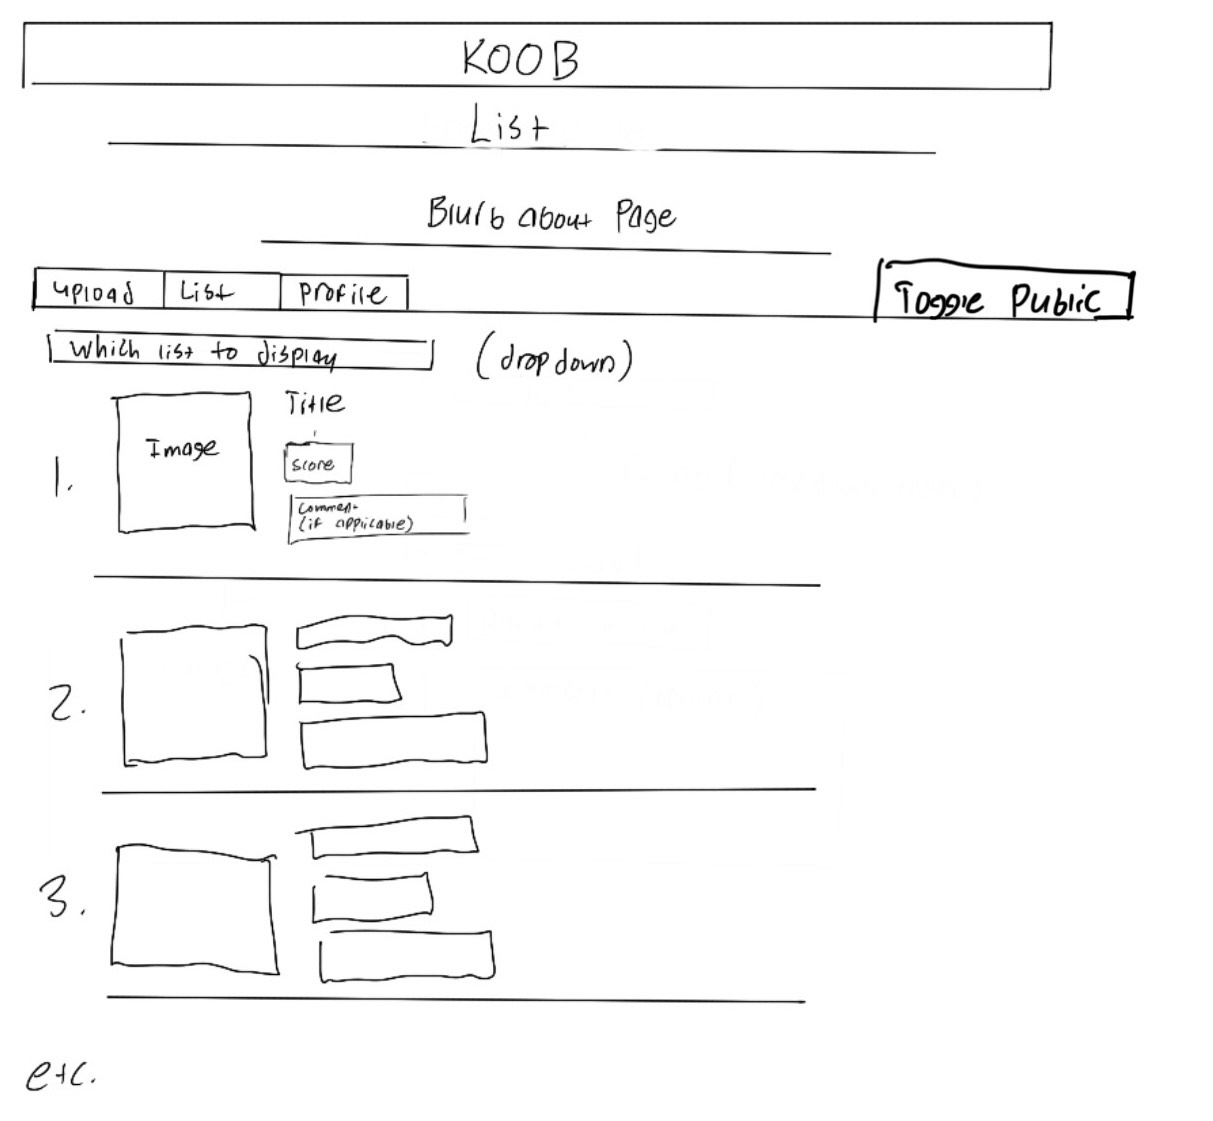 KOOB
List
Blurb about Page
upload List Profile Toggle Public
which list to display (drop down)
Title
Image
1.
score
comment
(if applicable)
2.
3.
etc.